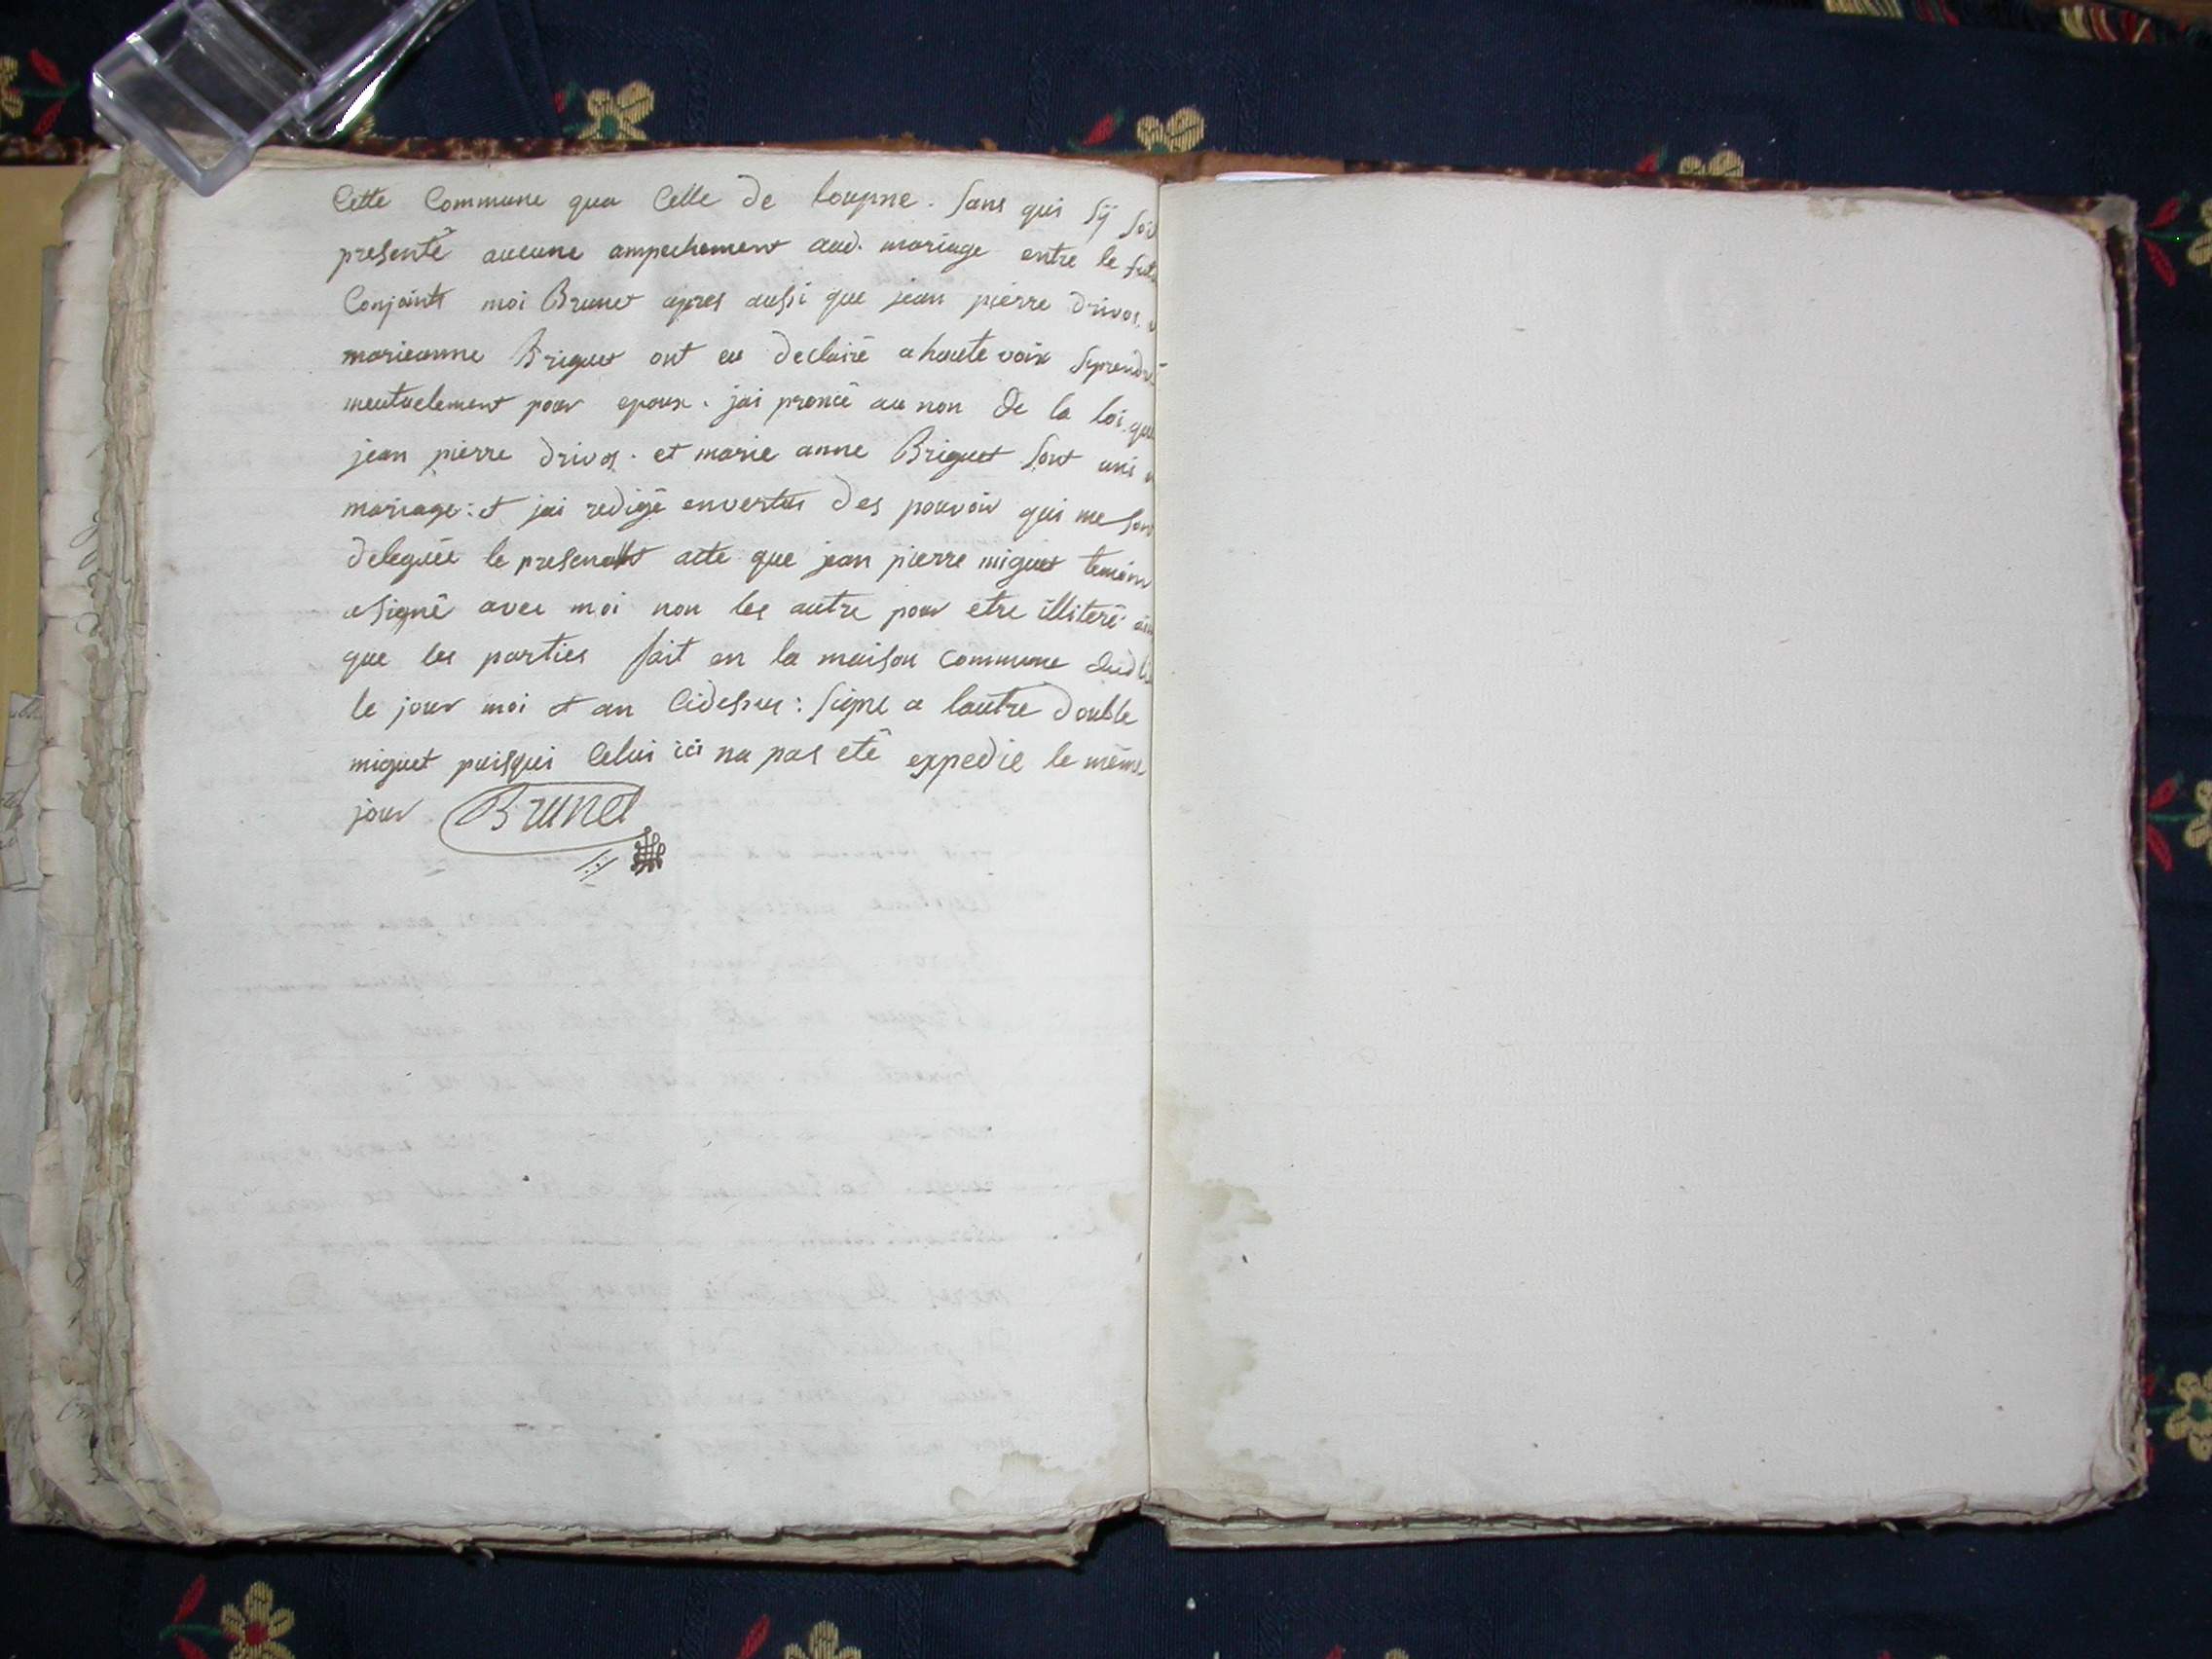 Cette Commune qua Celle de loupne. Sans qui Sÿ Soi
presenté aucune ampechement aud. mariage entre le fut
Conjoints moi Brunet apres aussi que jean pierre drivos.
marieanne Briguet ont eu declairé a haute voix Seprendre
meutuelement pour epoux. jai proncé au non de la loi. que
jean pierre drivos. et marie anne Briguet Sont uni
mariage: et jai redigé envertus des pouvoir qui me Son
deleguée le present acte que jean pierre miguet temoin
a Signé avec moi non les autre pour etre illiteré ain
que les parties fait en la maison commune dud li
le jour moi et an Cidessus: Signe a lautre double
miguet puisqui Celui ici na pas eté expedie le même
jour Brunet